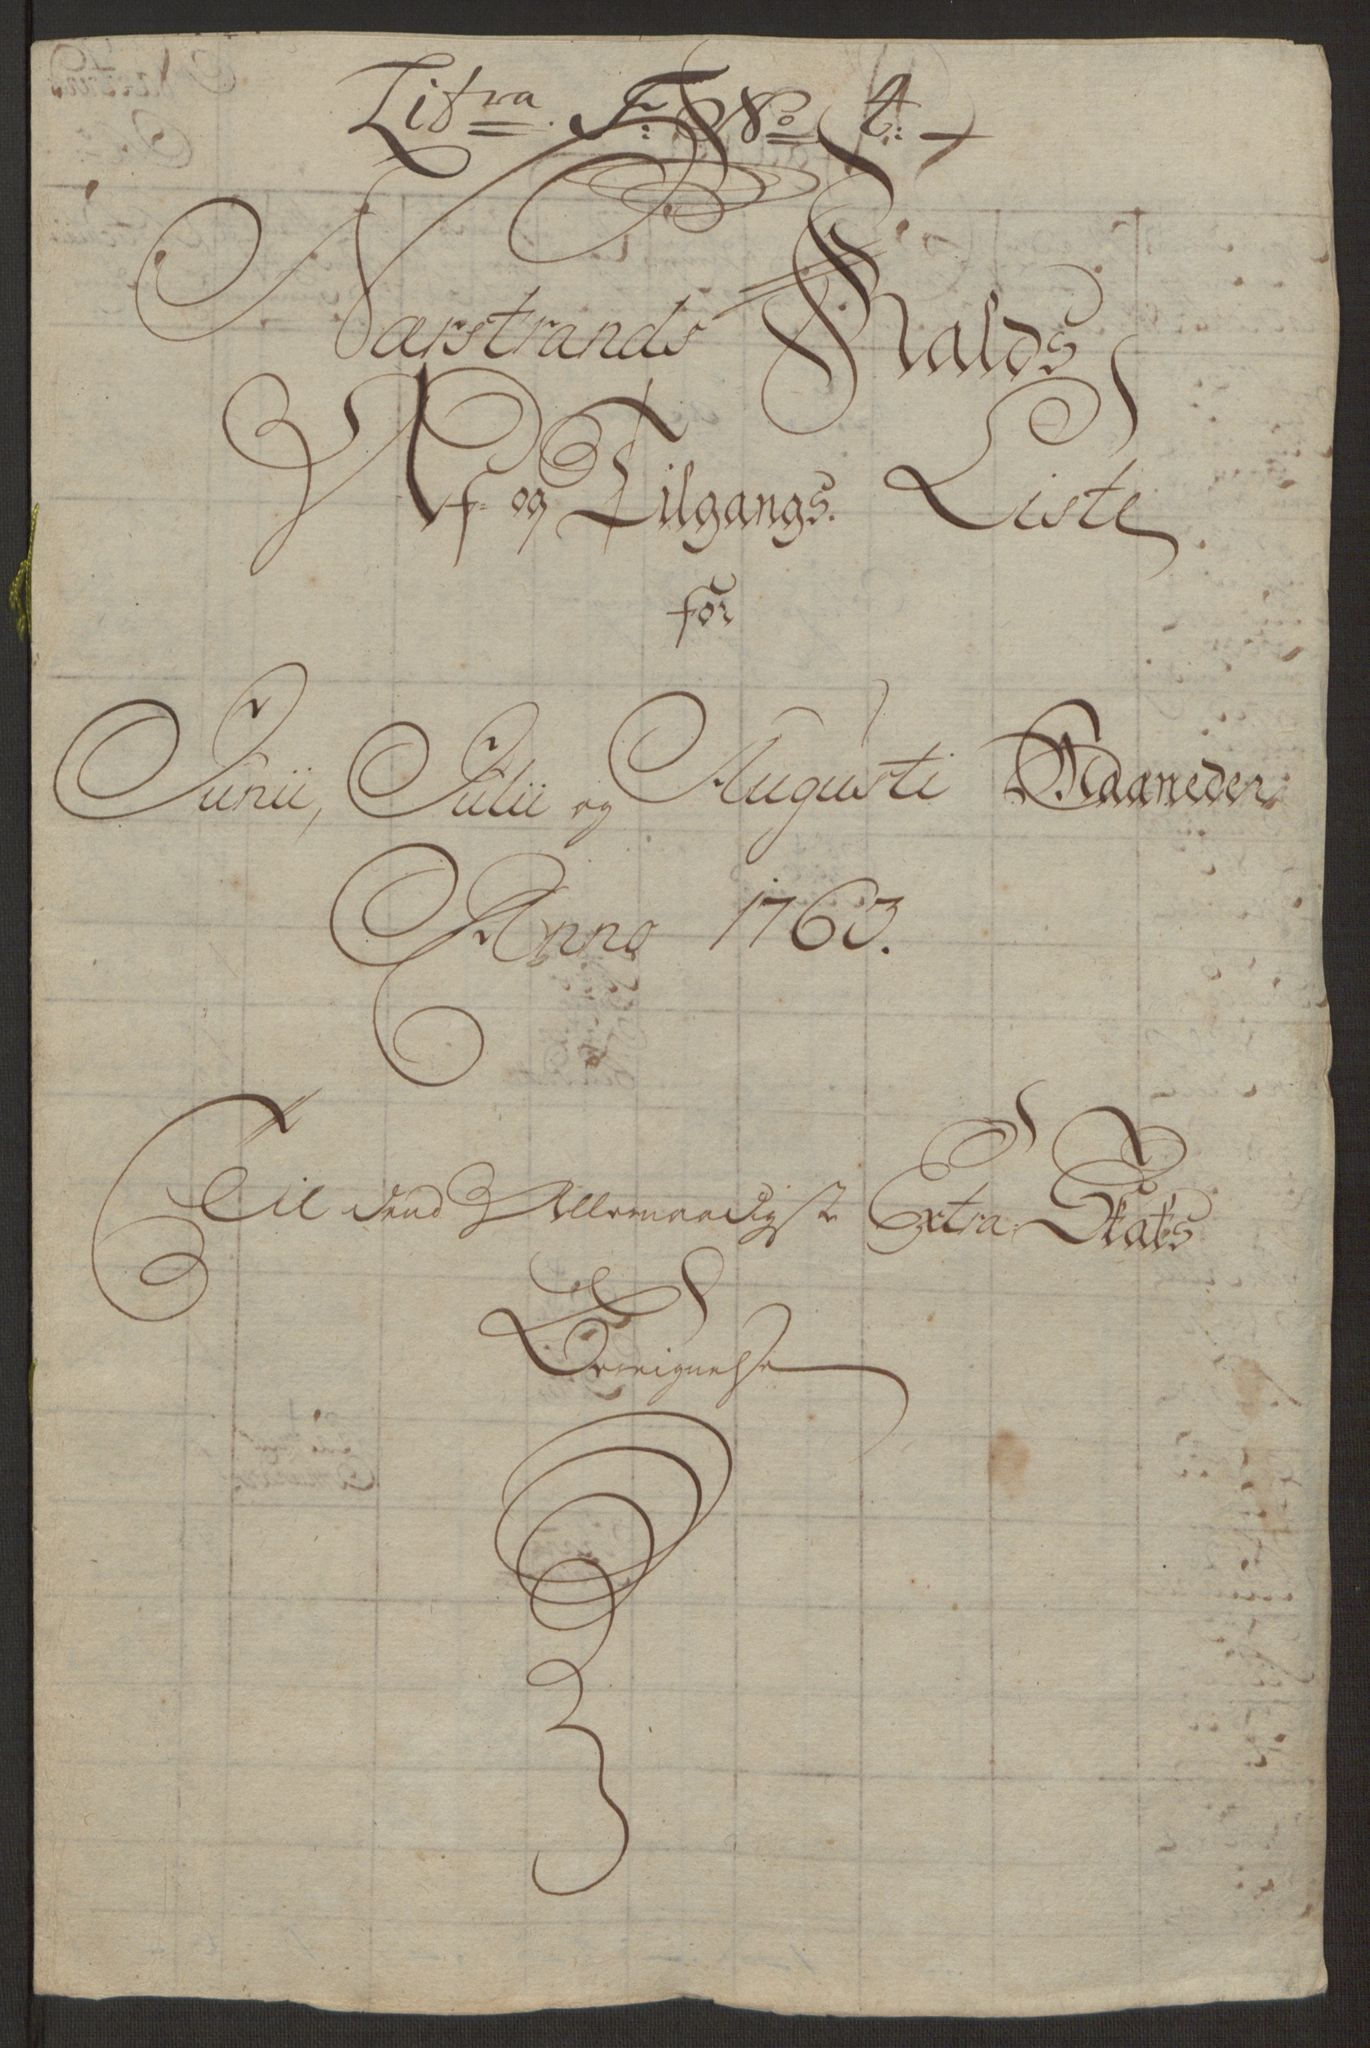 Litra. F: No 4:
Nærstrands Gialds
Af- og Tilgangs. Liste
for
Junii, Julii og Augusti Maaneder
Anno 1763.
Til dend Allernaadigste Extra Skats